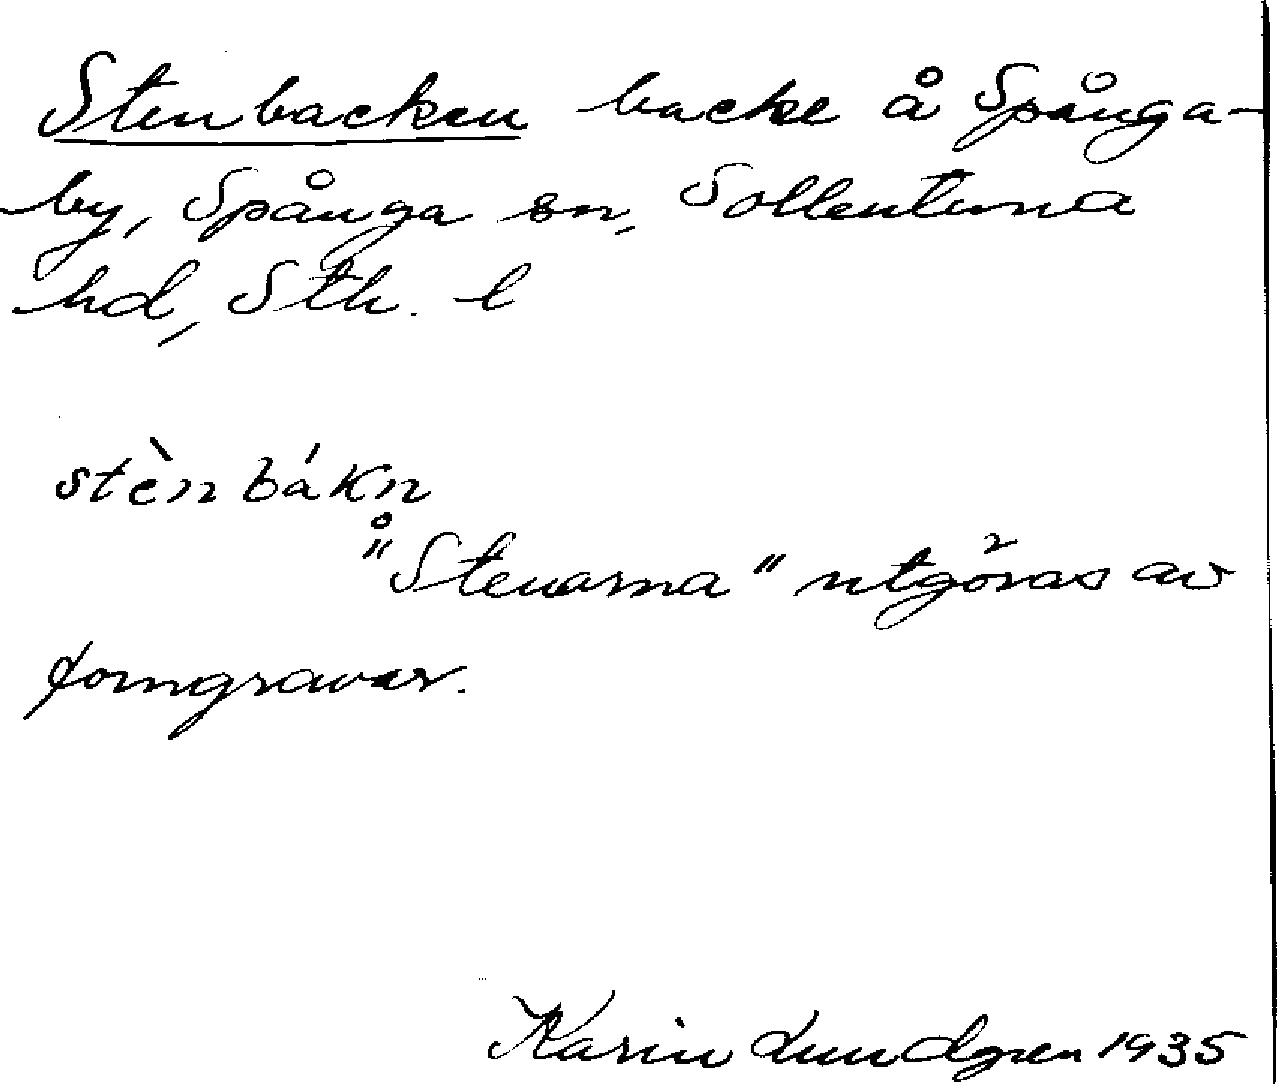 Stenbacken backe å Spånga-
by, Spånga sn, Sollentuna
hd, Sth. l
stèn bákn̥
"Stenarna" utgöras av
forngravar.
Karin Lundgren 1935